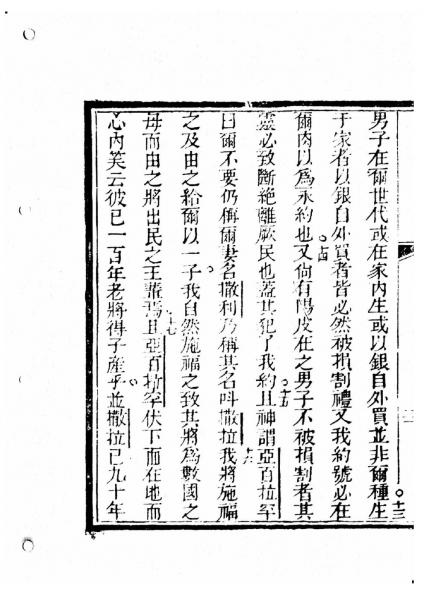 男子在爾世代或在家內生或以銀自外買並非爾種生十三
于家者以銀自外買者皆必然被損割禮又我約號必在
爾肉以為永約也十四又倘有陽皮在之男子不被損割者其
靈必致斷絕離厥民也蓋其犯了我約十五且神謂亞百拉罕
曰爾不要仍稱爾妻名撒利乃稱其名呌撒拉十六我將施福
之及由之給爾以一子我自然施福之致其將為數國之
母而由之將出民之王輩焉十七且亞百拉罕伏下面在地而
心內笑云彼已一百年老將得子產乎並撒拉已九十年